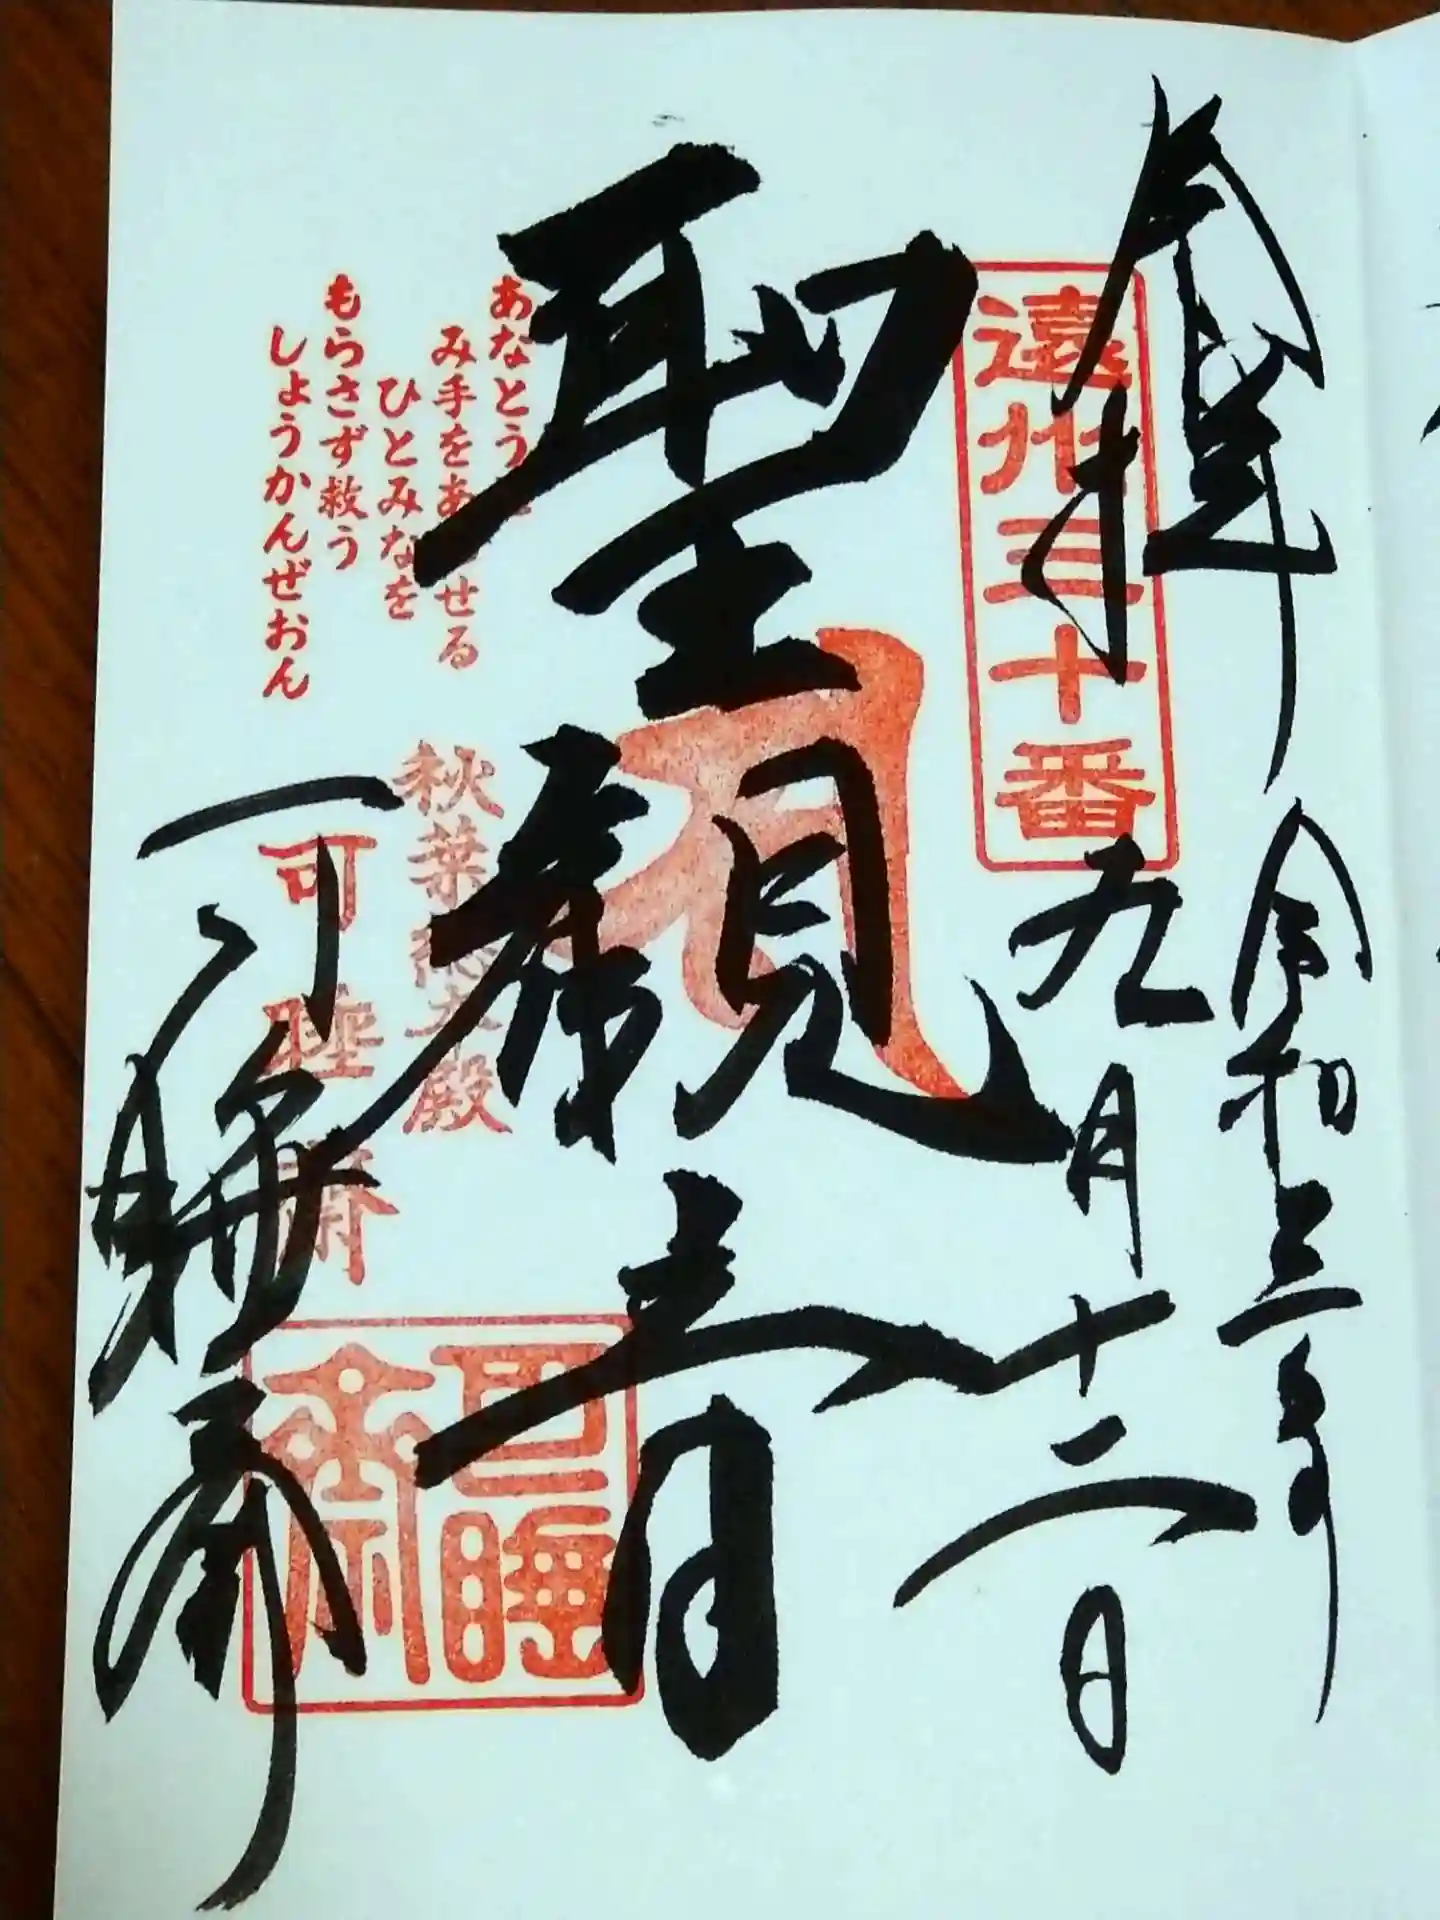 奉拝
令和三年
九月十二日
遠州三十番
聖観音
あなとう
み手をあ せる
ひとみなを
もらさず救う
しょうかんぜおん
秋葉総本殿
可睡斎
可睡斎
可睡斎